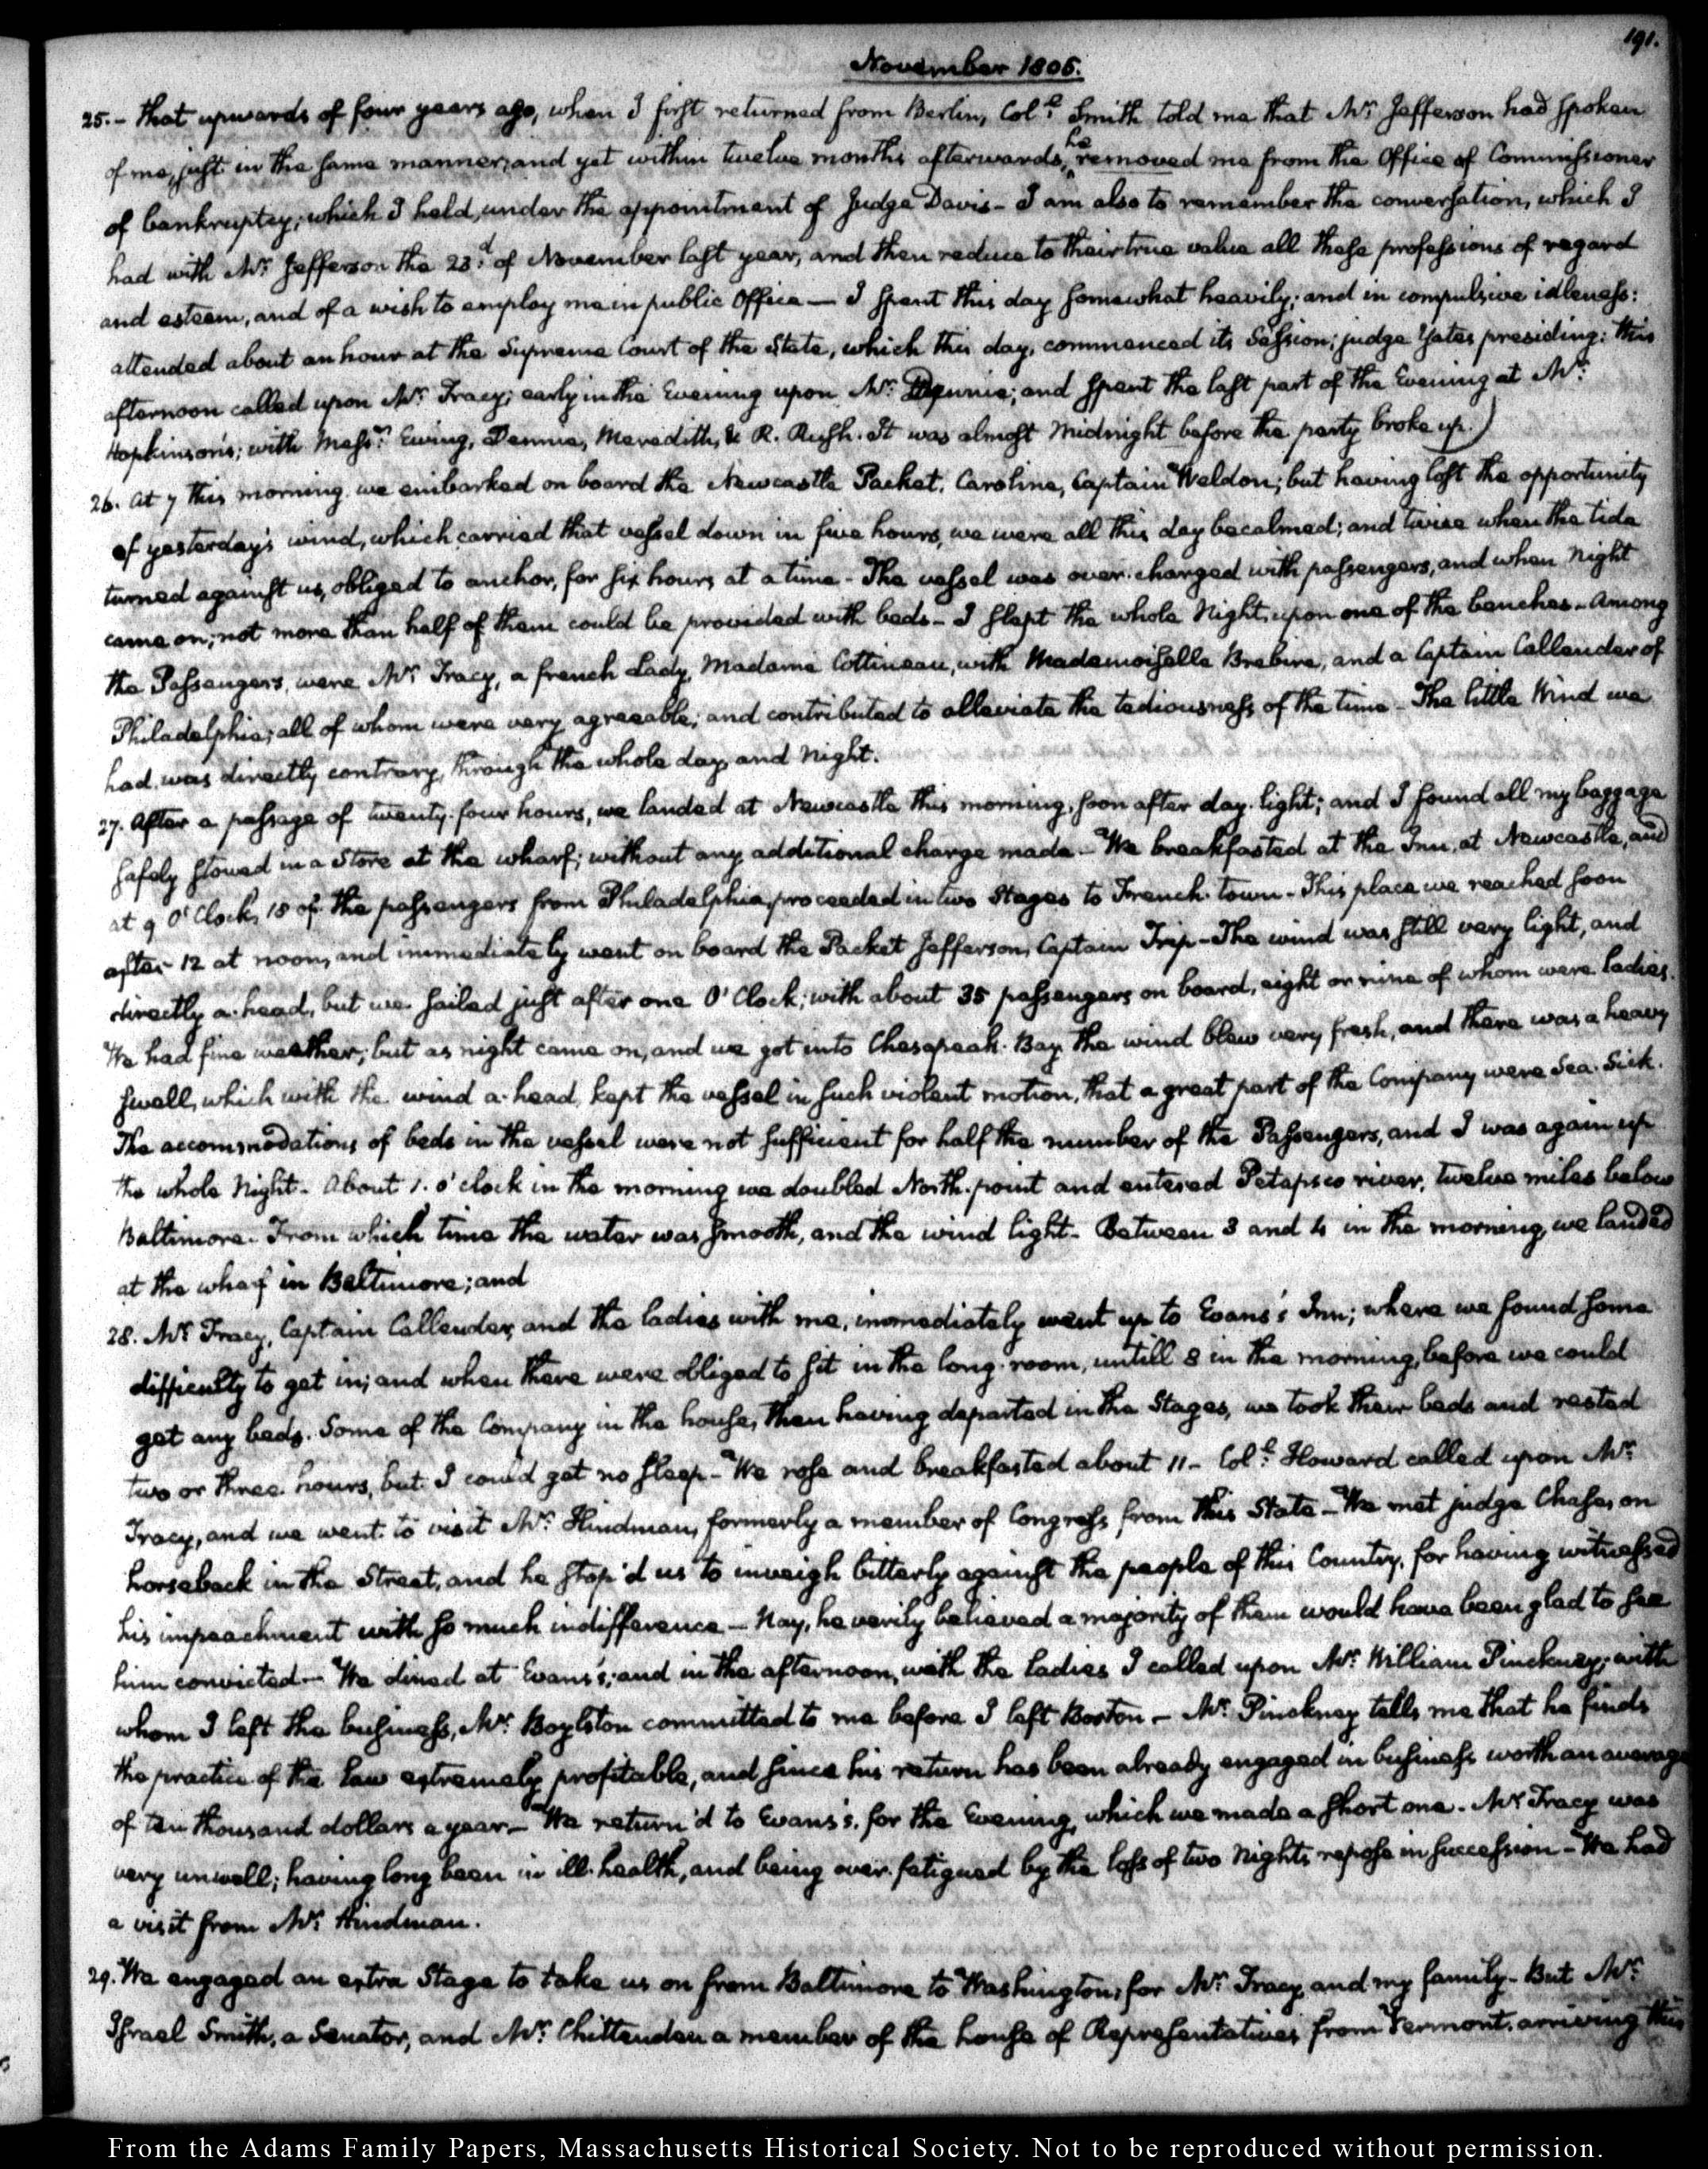 191.
November 1805.
25.- that upwards of four years ago, when I first returned from Berlin, Col.l Smith told me that Mr. Jefferson had spoken
of me, just in the same manner; and yet within twelve months afterwards, he removed me from the Office of Commissioner
of bankruptcy; which I held, under the appointment of Judge Davis- I am also to remember the conversation, which I
had with Mr. Jefferson the 23.d of November last year, and then reduce to their true value all these professions of regard
and esteem, and of a wish to employ me in public Office— I spent this day somewhat heavily; and in compulsive idleness:
attended about an hour at the Supreme Court of the State, which this day, commenced its Session; judge Yates presiding: this
afternoon called upon Mr. Tracy; early in the Evening upon Mr. Dennie; and spent the last part of the Evening at Mr.
Hopkinson's; with Mess.rs Ewing, Dennie, Meredith, & R. Rush. It was almost midnight before the party broke up.)
26. At 7 this morning we embarked on board the Newcastle Packet, Carolina, Captain Weldon; but having lost the opportunity
of yesterday's wind, which carried that vessel down in five hours, we were all this day becalmed; and twice when the tide
turned against us, obliged to anchor, for six hours at a time- The vessel was over-charged with passengers, and when Night
came on, not more than half of them could be provided with beds- I slept the whole Night, upon one of the benches- Among
the Passengers, were Mr. Tracy, a french Lady, Madame Cottineau, with Mademoiselle Brebire, and a Captain Callender of
Philadelphia; all of whom were very agreeable; and contributed to alleviate the tediousness of the time- The little Wind we
had was directly contrary, through the whole day, and Night.
27. After a passage of twenty-four hours, we landed at Newcastle this morning, soon after day-light; and I found all my baggage
safely stowed in a store at the wharf; without any additional charge made.- We breakfasted at the Inn, at Newcastle, and
at 9 O'Clock, 18 of the passengers from Philadelphia, proceeded in two Stages to French-town- This place we reached soon
after 12 at noon, and immediately went on board the Packet Jefferson, Captain Trip- The wind was still very light, and
directly a-head, but we sailed just after one O'Clock; with about 35 passengers on board, eight or nine of whom were ladies.
We had fine weather; but as night came on, and we got into Chesapeak-Bay the wind blew very fresh, and there was a heavy
swell, which with the wind a-head, kept the vessel in such violent motion, that a great part of the Company were Sea-Sick.
The accommodations of beds in the vessel were not sufficient for half the number of the Passengers, and I was again up
the whole Night- About 1. o'clock in the morning we doubled North-point and entered Petapsco river, twelve miles below
Baltimore- From which time the water was smooth, and the wind light- Between 3 and 4 in the morning, we landed
at the wharf in Baltimore; and
28. Mr. Tracy, Captain Callender, and the ladies with me, immediately went up to Evans's Inn; where we found some
difficulty to get in; and when there were obliged to sit in the long-room, untill 8 in the morning, before we could
get any beds. Some of the Company in the house, then having departed in the Stages, we took their beds and rested
two or three hours, but I could get no sleep- We rose and breakfasted about 11- Col.l Howard called upon Mr.
Tracy, and we went to visit Mr. Hindman, formerly a member of Congress from this State- We met judge Chase, on
horseback in the Street, and he stop'd us to inveigh bitterly against the people of this Country, for having witnessed
his impeachment with so much indifference- Nay, he verily believed a majority of them would have been glad to see
him convicted- We dined at Evans's; and in the afternoon, with the ladies I called upon Mr. William Pinckney; with
whom I left the business, Mr. Boylston committed to me before I left Boston- Mr. Pinckney tells me that he finds
the practice of the Law extremely profitable, and since his return has been already engaged in business worth an average
of ten thousand dollars a year- We return'd to Evans's, for the Evening, which we made a short one. Mr. Tracy was
very unwell; having long been in ill-health, and being over-fatigued by the loss of two Nights repose in succession- We had
a visit from Mr. Hindman.
29. We engaged an extra Stage to take us on from Baltimore to Washington, for Mr. Tracy, and my family- But Mr.
Israel Smith, a Senator, and Mr. Chittenden a member of the house of Representatives from Vermont, arriving this
From the Adams Family Papers, Massachusetts Historical Society. Not to be reproduced without permission.